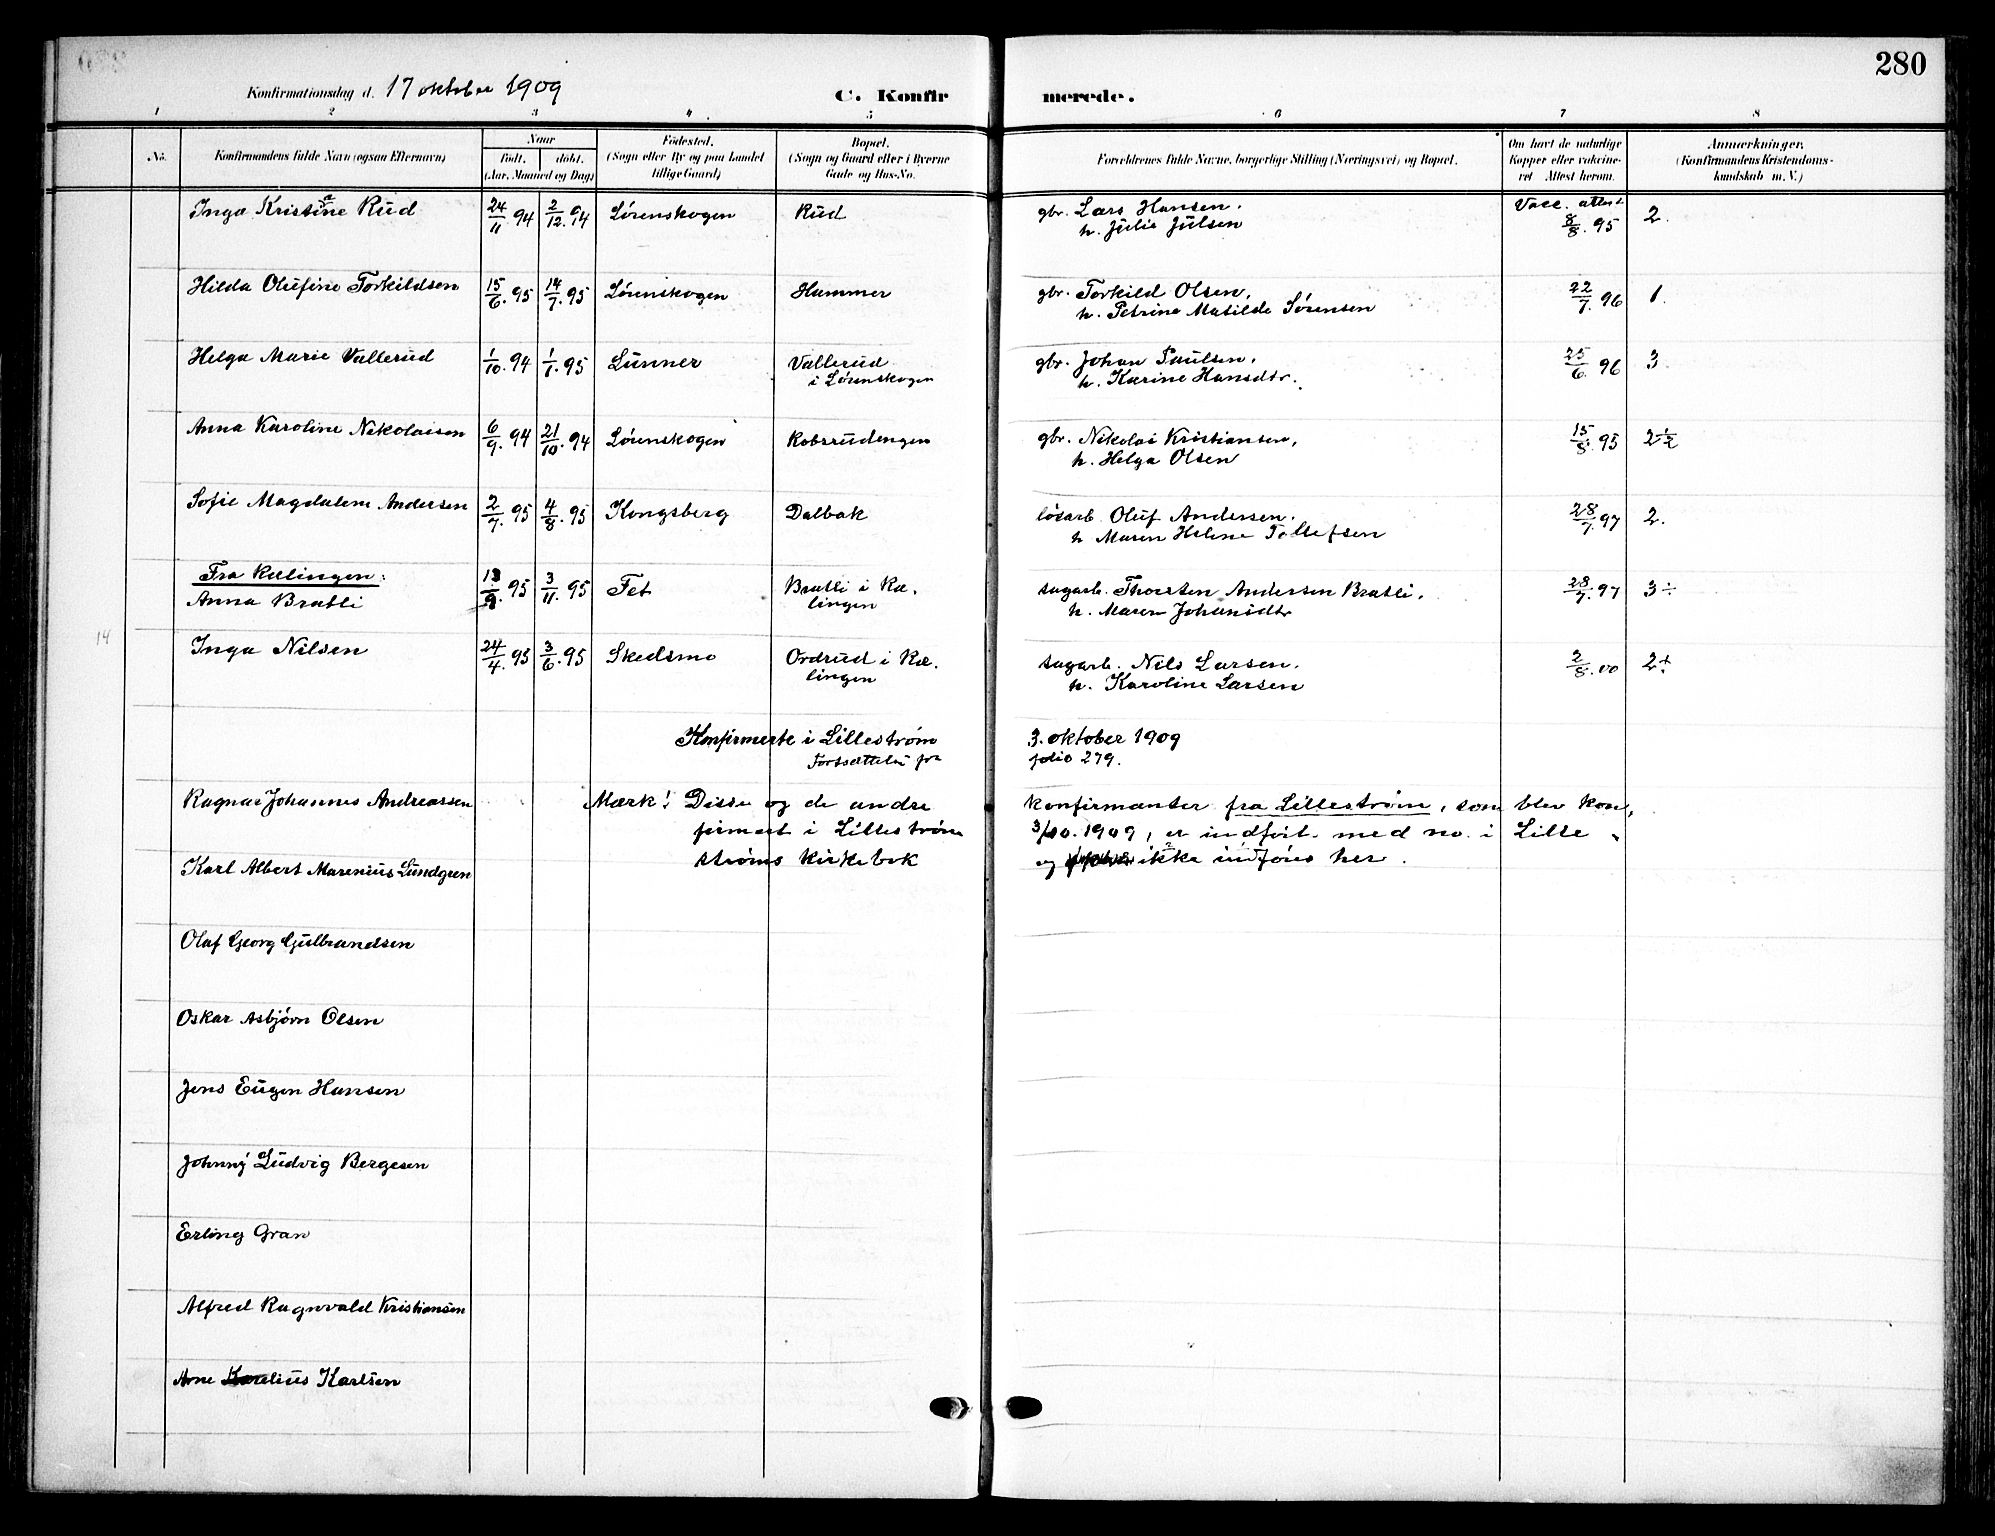 280
Konfirmationsdag d. 17 oktober 1909
C. Konfirmerede.
1 2 3 4 5 6 7 8
No.
Konfirmandens fulde Navn (ogsaa Efternavn)
Naar
født. døbt.
(Aar, Maaned og Dag)
Fødested.
(Sogn eller By og paa Landet
tillige Gaard)
Bopæl.
(Sogn og Gaard eller i Byerne
Gade og Hus-No.
Forældrenes fulde Navne, borgerlige Stilling (Næringsvei) og Bopæl.
Om havt de naturlige
Kopper eller vakcine-
ret Attest herom.
Anmærkninger.
(Konfirmandens Kristendoms-
kundskab m. V.)
Inga Kristine Rud 24/11 94 2/12. 94 Lørenskogen Rud gbr. Lars Hansen. Vacc. attest 2.
h. Julie Julsen 8/8. 95
Hilda Olufine Torkildsen 15/6. 95 14/7. 95 Lørenskogen Hammer gbr. Torkild Olsen, 22/7. 96 1.
h. Petrine Matilde Sørensen
Helga Marie Vallerud 1/10. 94 1/1. 95 Lunner Vallerud gbr. Johan Paulsen. 25/6 96 3.
i Lørenskogen h. Karine Hansdtr.
Anna Karoline Nikolaisen 6/9. 94 21/10. 94 Lørenskogen Robsrudengen gbr. Nikolai Kristiansen, 15/8. 95 2 1/2
h. Helga Olsen
Sofie Magdalene Andersen 2/7. 95 4/8. 95 Kongsberg Dalbak løsarb. Oluf Andersen. 28/7. 97 2.
h Maren Helene Tollefsen
Fra Rælingen:
Anna Bratli 13/9. 95 3/11. 95 Fet Bratli i Ræ. sagarb. Thorsten Andersen Bratli. 28/7. 97 3÷
lingen h. Maren Johansdtr
14
Inga Nilsen 24/4. 95 3/6. 95 Skedsmo Ordrud i Ræ. sagarb. Nils Larsen. 2/8. 00
lingen h. Karoline Larsen
Konfirmerte i Lillestrøm 3. oktober 1909
Fortsættelse fra folio 279.
Ragnar Johannes Andreassen Mærk! Disse og de andre konfirmanter fra Lillestrøm, som blev kon.
firmert i Lillestrøm 3/10. 1909, er indført med no. i Lille
strøms kirkebok og ikke indføres her.
Karl Albert Marenius Lundgren
Olaf Georg Gulbrandsen
Oskar Asbjørn Olsen
Jens Eugen Hansen
Johnny Ludvig Bergesen
Erling Gran
Alfred Ragnvald Kristiansen
Arne Karlsen